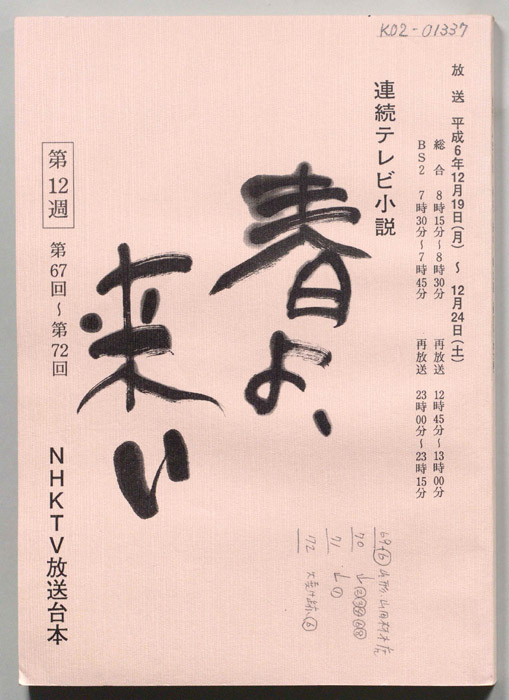 K02-01337
放送 平成6年12月19日(月) ~ 12月24日(土)
総合 8時15分~8時30分 再放送 12時45分~13時00分
BS2 7時30分~7時45分 再放送 23時00分~23時15分
連続テレビ小説
春よ、
来い
第12週
第67回~第72回
NHKTV放送台本
70
71